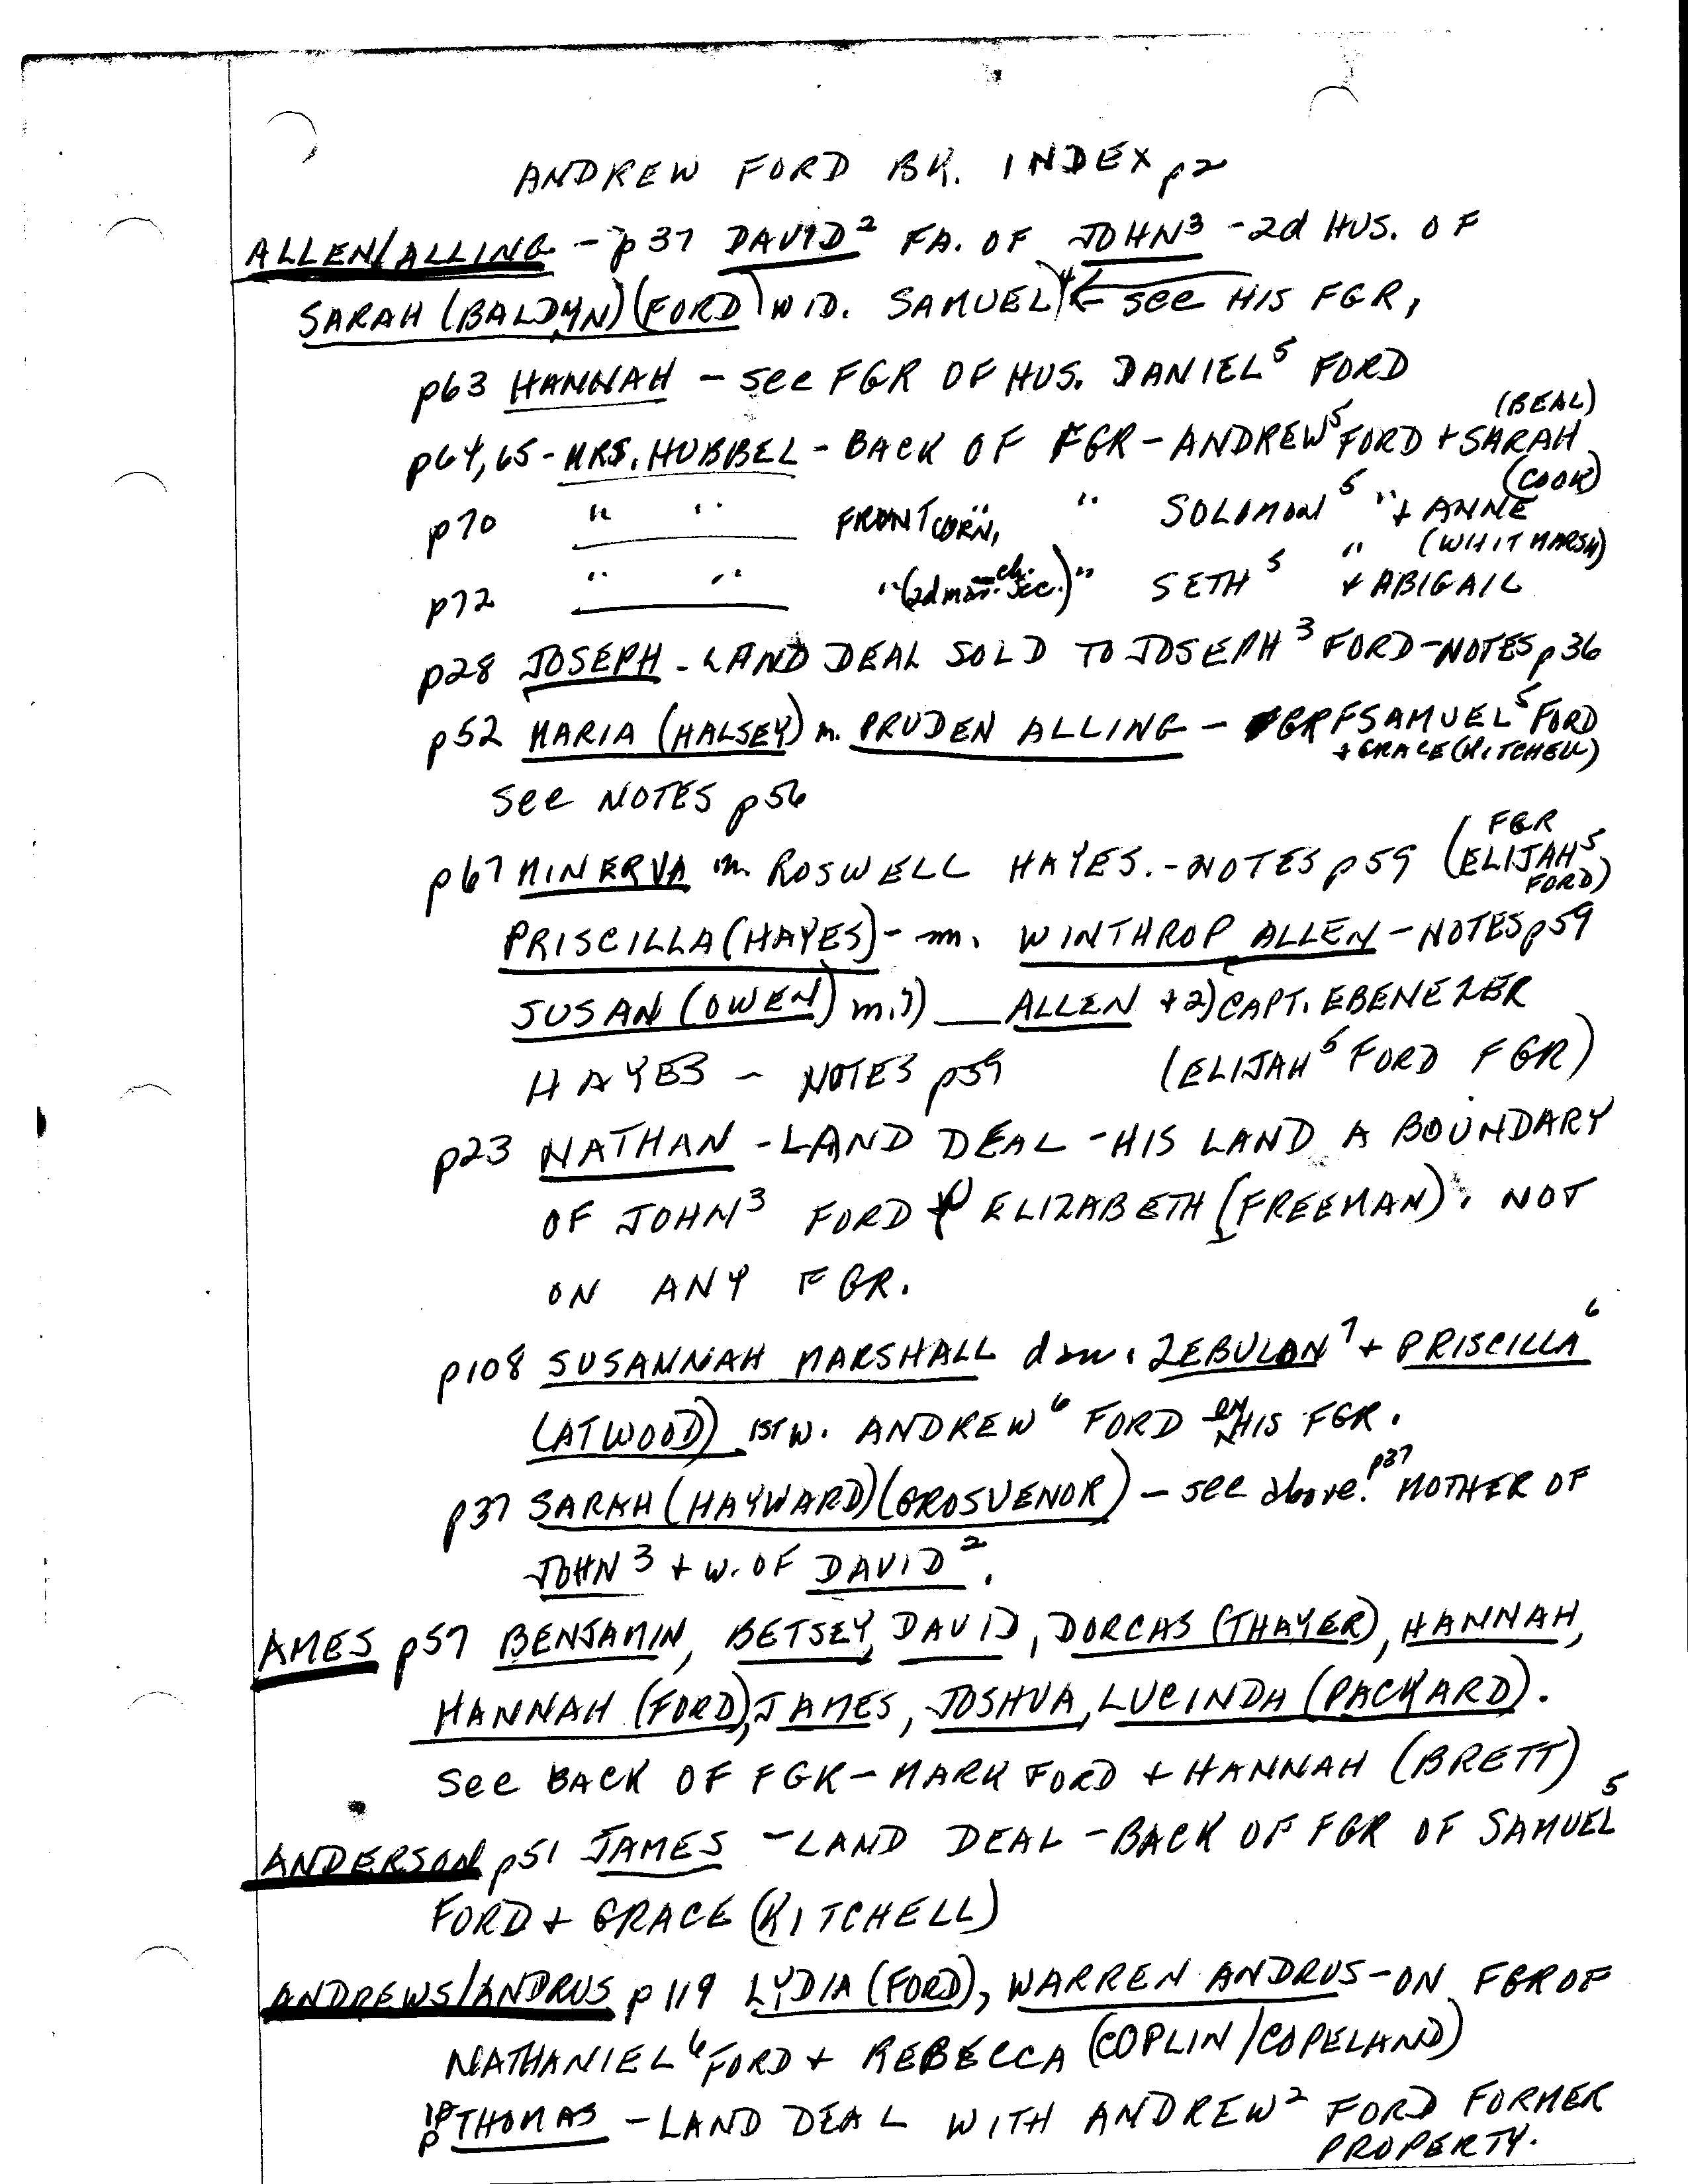 ANDREW FORD BK. INDEX p2
ALLEN/ALLING - p37 DAVID² FA. OF JOHN³ - 2d HUS. OF
SARAH (BALDWYN) (FORD) WID. SAMUEL⁴ ← see HIS FGR,
p63 HANNAH - see FGR OF HUS. DANIEL⁵ FORD
(BEAL)
p64,65 - MRS. HUBBEL - BACK OF FGR - ANDREW⁵ FORD + SARAH
(COOK)
p70 " " FRONT CORN, " SOLOMON⁵ " + ANNE
(WHITMARSH)
p72 " " "(2d mar. ch. sec.)" SETH⁵ " + ABIGAIL
p28 JOSEPH - LAND DEAL SOLD TO JOSEPH³ FORD - NOTES p36
p52 MARIA (HALSEY) m. PRUDEN ALLING - FGR SAMUEL⁵ FORD
+ GRACE (KITCHELL)
see NOTES p56
p67 MINERVA m. ROSWELL HAYES. - NOTES p59 (FGR ELIJAH⁵ FORD)
PRISCILLA (HAYES) - m. WINTHROP ALLEN - NOTES p59
SUSAN (OWEN) m. 1) ___ ALLEN + 2) CAPT. EBENEZER
HAYES - NOTES p59 (ELIJAH⁵ FORD FGR)
p23 NATHAN - LAND DEAL - HIS LAND A BOUNDARY
OF JOHN³ FORD + ELIZABETH (FREEMAN). NOT
ON ANY FGR.
p108 SUSANNAH MARSHALL dau. ZEBULON⁷ + PRISCILLA⁶
(ATWOOD) 1ST W. ANDREW⁶ FORD ON HIS FGR.
p37 SARAH (HAYWARD) (GROSVENOR) - see above p37 MOTHER OF
JOHN³ + W. OF DAVID².
AMES p57 BENJAMIN, BETSEY, DAVID, DORCAS (THAYER), HANNAH,
HANNAH (FORD), JAMES, JOSHUA, LUCINDA (PACKARD).
See BACK OF FGR - MARK FORD + HANNAH (BRETT)
ANDERSON p51 JAMES - LAND DEAL - BACK OF FGR OF SAMUEL⁵
FORD + GRACE (KITCHELL)
ANDREWS/ANDRUS p119 LYDIA (FORD), WARREN ANDRUS - ON FGR OF
NATHANIEL⁶ FORD + REBECCA (COPLIN/COPELAND)
p18 THOMAS - LAND DEAL WITH ANDREW² FORD FORMER
PROPERTY.